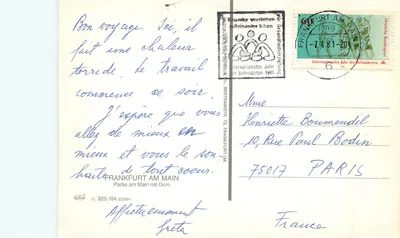 Bon voyage. Ici, il
fait une chaleur
torride. Le travail
commence ce soir.
J'espère que vous
allez de mieux en
mieux et vous le sou-
haite de tout coeur.
FRANKFURT AM MAIN
Partie am Main mit Dom
Affectueusement
Greta
Einander verstehen
miteinander leben
FRANKFURT AM MAIN
-7.6.81-20
6
Deutsche Bundespost
Internationales Jahr der Behinderten
Mme
Henriette Boumendil
10, Rue Paul Bodin
75017 PARIS
France